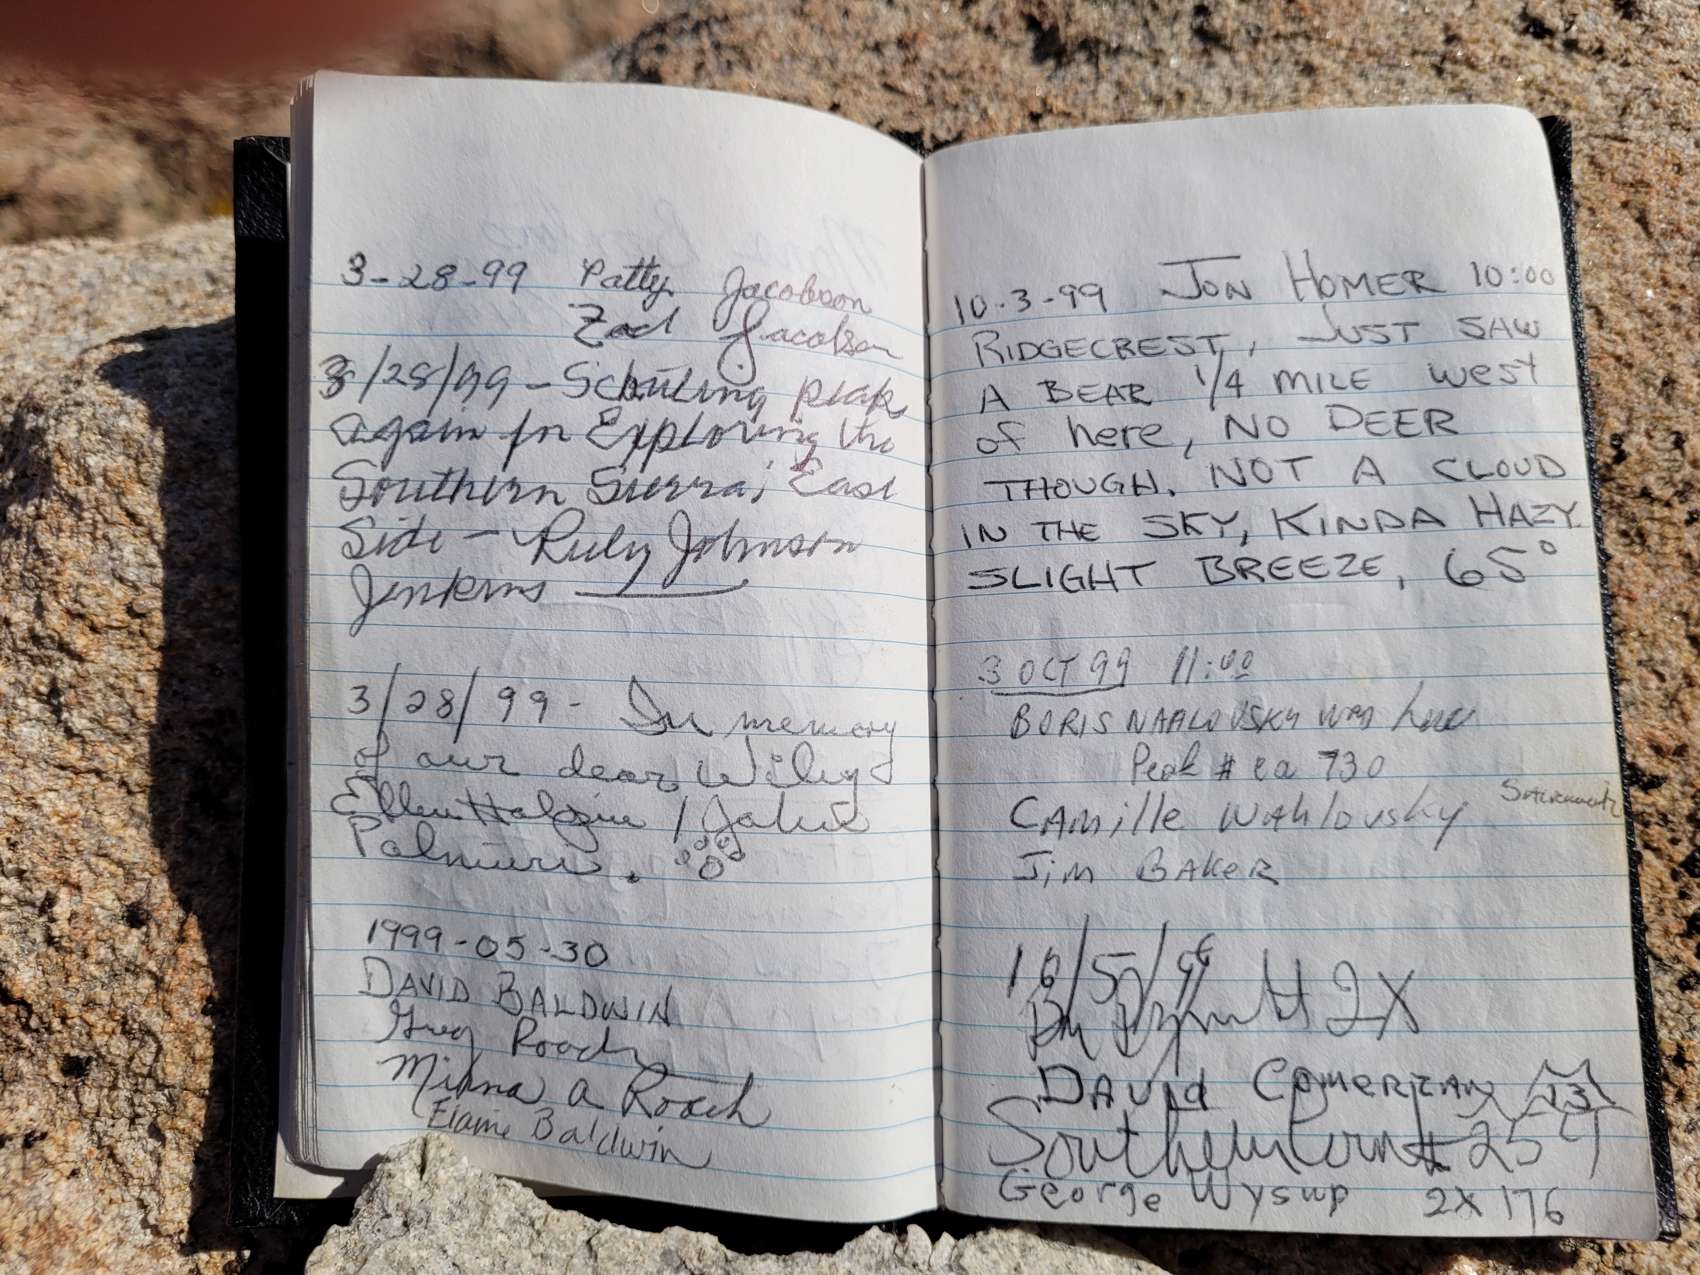 3-28-99 Patty Jacobson
Zach Jacobson
3/28/99 - Scheduling peak
again for Exploring the
Southern Sierra, East
Side - Ruby Johnson
Jenkins
3/28/99 - In memory
of our dear
Ellen /
1999-05-30
DAVID BALDWIN
Greg Roach
a Roach
Elaine Baldwin
10-3-99 JON HOMER 10:00
RIDGECREST, JUST SAW
A BEAR 1/4 MILE west
of here, NO DEER
THOUGH. NOT A CLOUD
IN THE SKY, KINDA HAZY
SLIGHT BREEZE, 65°
3 OCT 99 11:00
BORIS was here
Peak # ca 730
CAMille WAHlovsky Sacramento
Jim BAKER
10/5/99
2X
DAVid 13
#25
George Wysup 2X 176